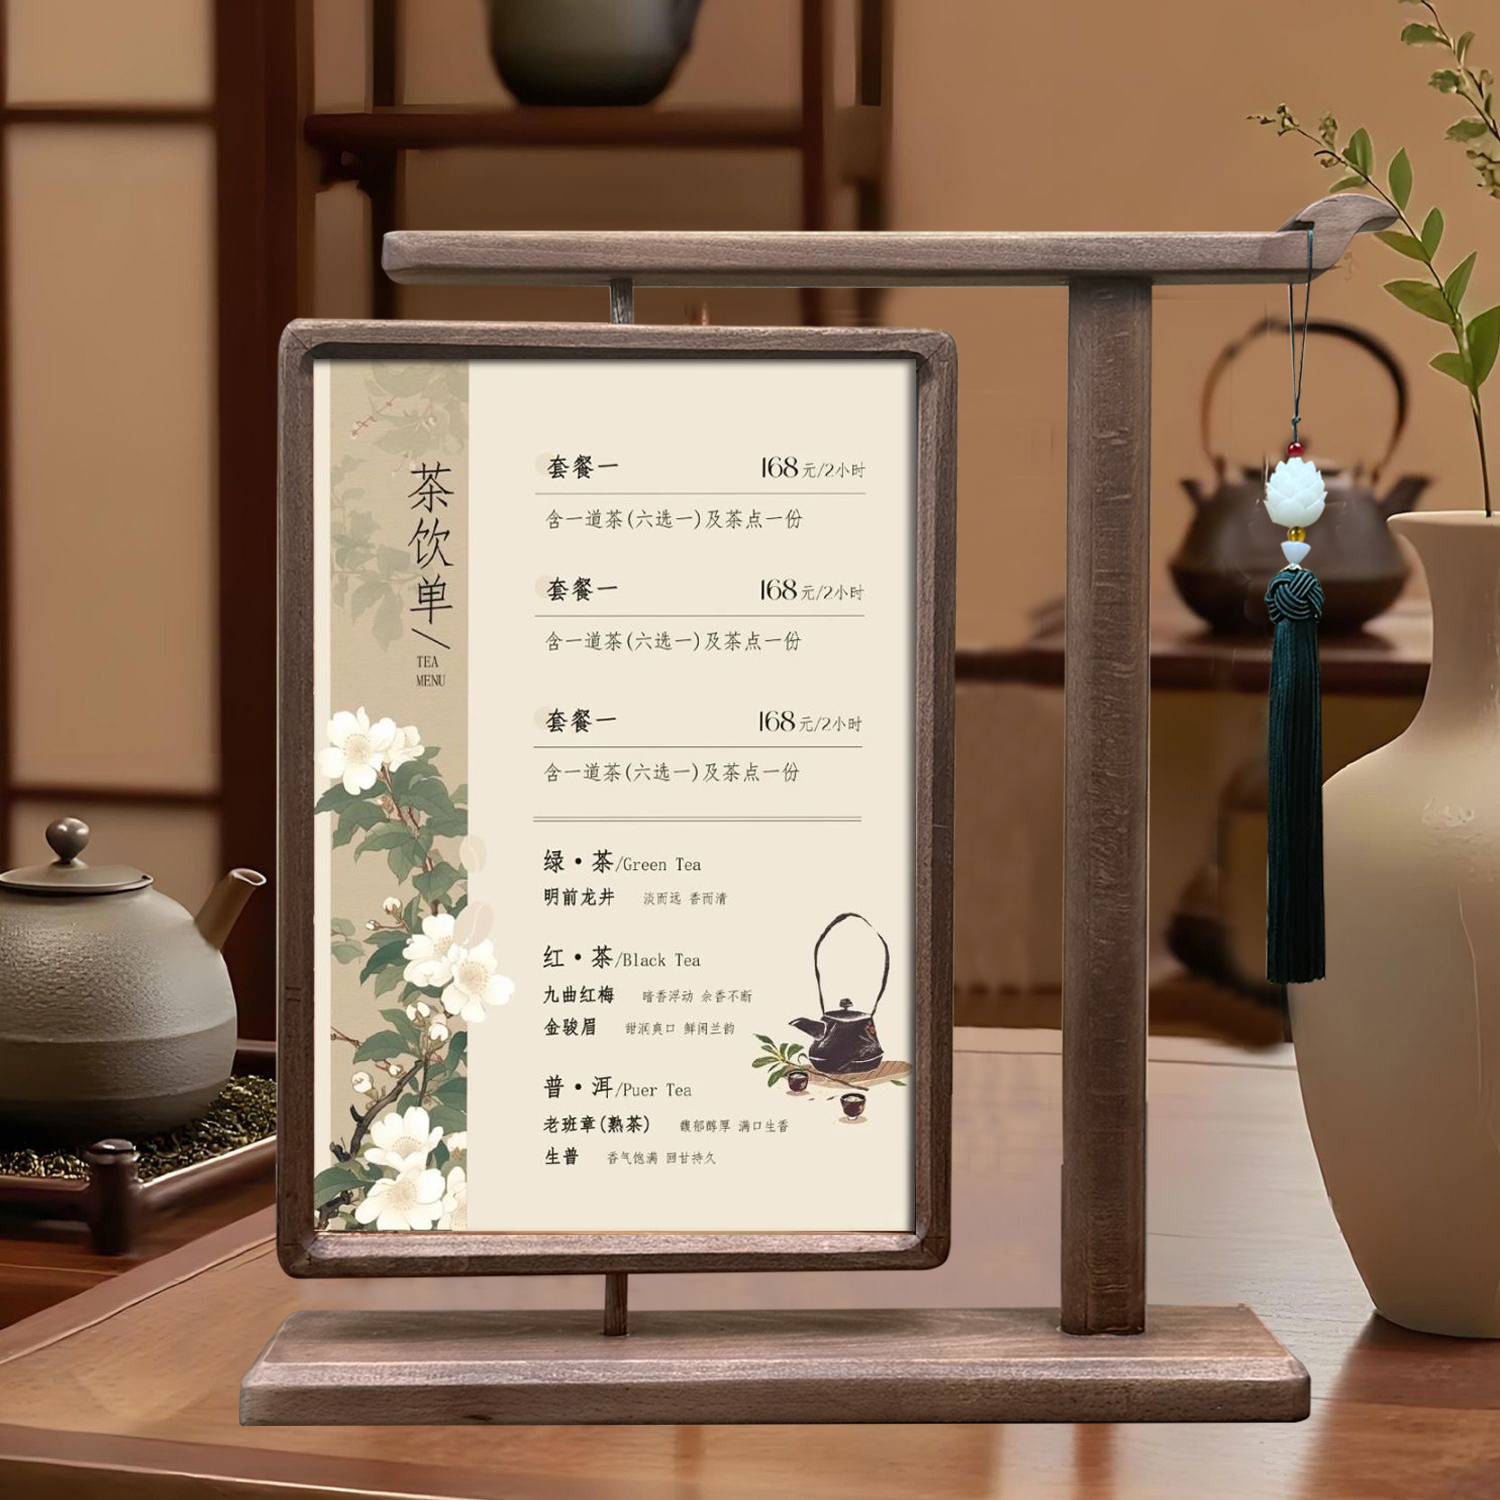 茶饮单
TEA
MENU
套餐一 168元/2小时
含一道茶(六选一)及茶点一份
套餐一 168元/2小时
含一道茶(六选一)及茶点一份
套餐一 168元/2小时
含一道茶(六选一)及茶点一份
绿·茶/Green Tea
明前龙井 淡而远 香而清
红·茶/Black Tea
九曲红梅 暗香浮动 余香不断
金骏眉 甜润爽口 鲜闲兰韵
普·洱/Puer Tea
老班章(熟茶) 馥郁醇厚 满口生香
生普 香气饱满 回甘持久